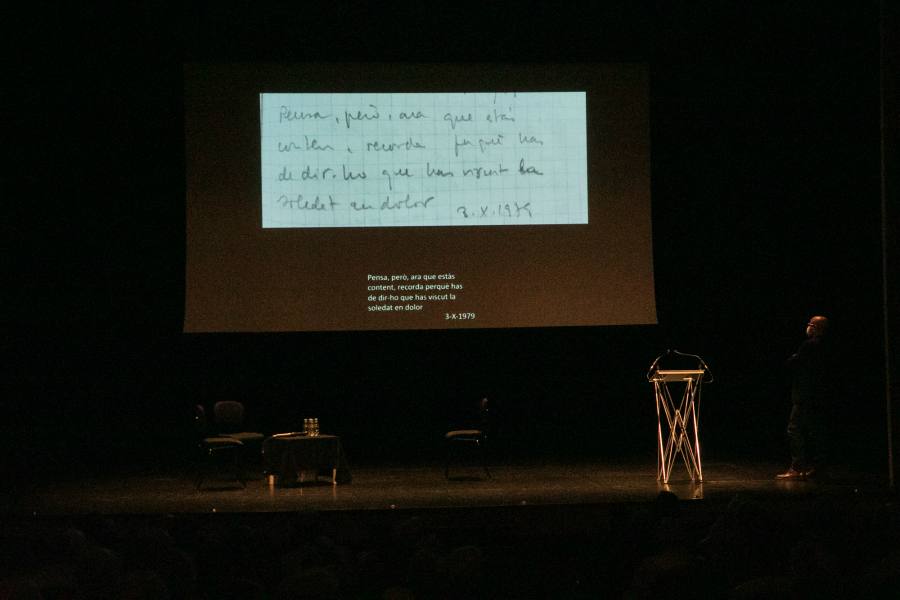 Pensa, però, ara que estás
content, recorda perquè has
de dir-ho que has viscut la
soledat en dolor 3.X.1979
Pensa, però, ara que estàs
content, recorda perquè has
de dir-ho que has viscut la
soledat en dolor
3-X-1979